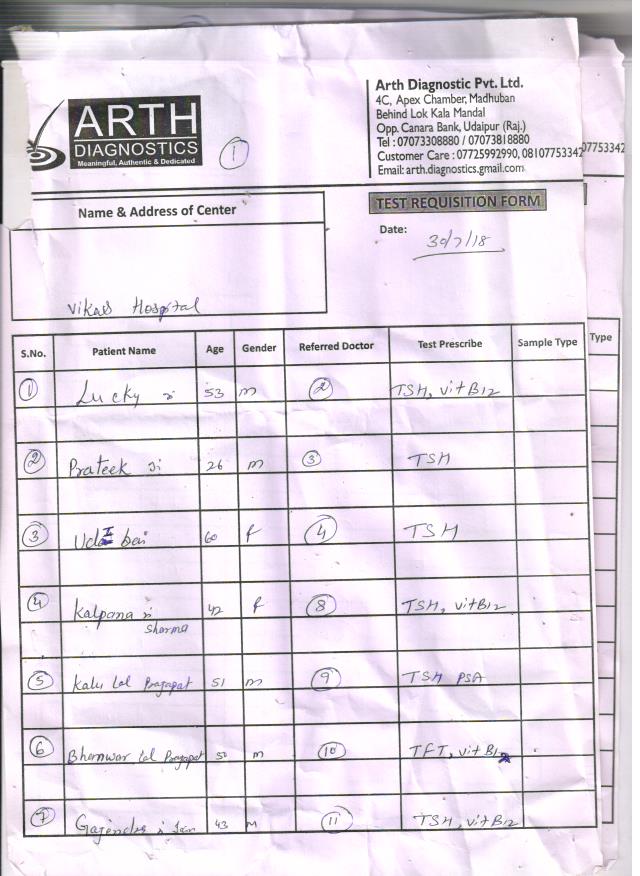 ARTH
DIAGNOSTICS
Meaningful, Authentic & Dedicated
1
Arth Diagnostic Pvt. Ltd.
4C, Apex Chamber, Madhuban
Behind Lok Kala Mandal
Opp. Canara Bank, Udaipur (Raj.)
Tel : 07073308880 / 07073818880
Customer Care : 07725992990, 08107753342
07753342
Email: arth.diagnostics.gmail.com
Name & Address of Center
TEST REQUISITION FORM
Date: 30/7/18
Vikas Hospital
S.No. Patient Name Age Gender Referred Doctor Test Prescribe Sample Type
Type
1 Lucky 53 m 2 TSH, vitB12
2 Prateek Ji 26 m 3 TSH
3 bai 60 f 4 TSH
4 Kalpana 42 f 8 TSH, vitB12
Sharma
5 Kalu Lal Prajapat 51 m 9 TSH PSA
6 Bhanwar Lal Prajapat 50 m 10 TFT, vitB12
7 43 m 11 TSH, vitB12